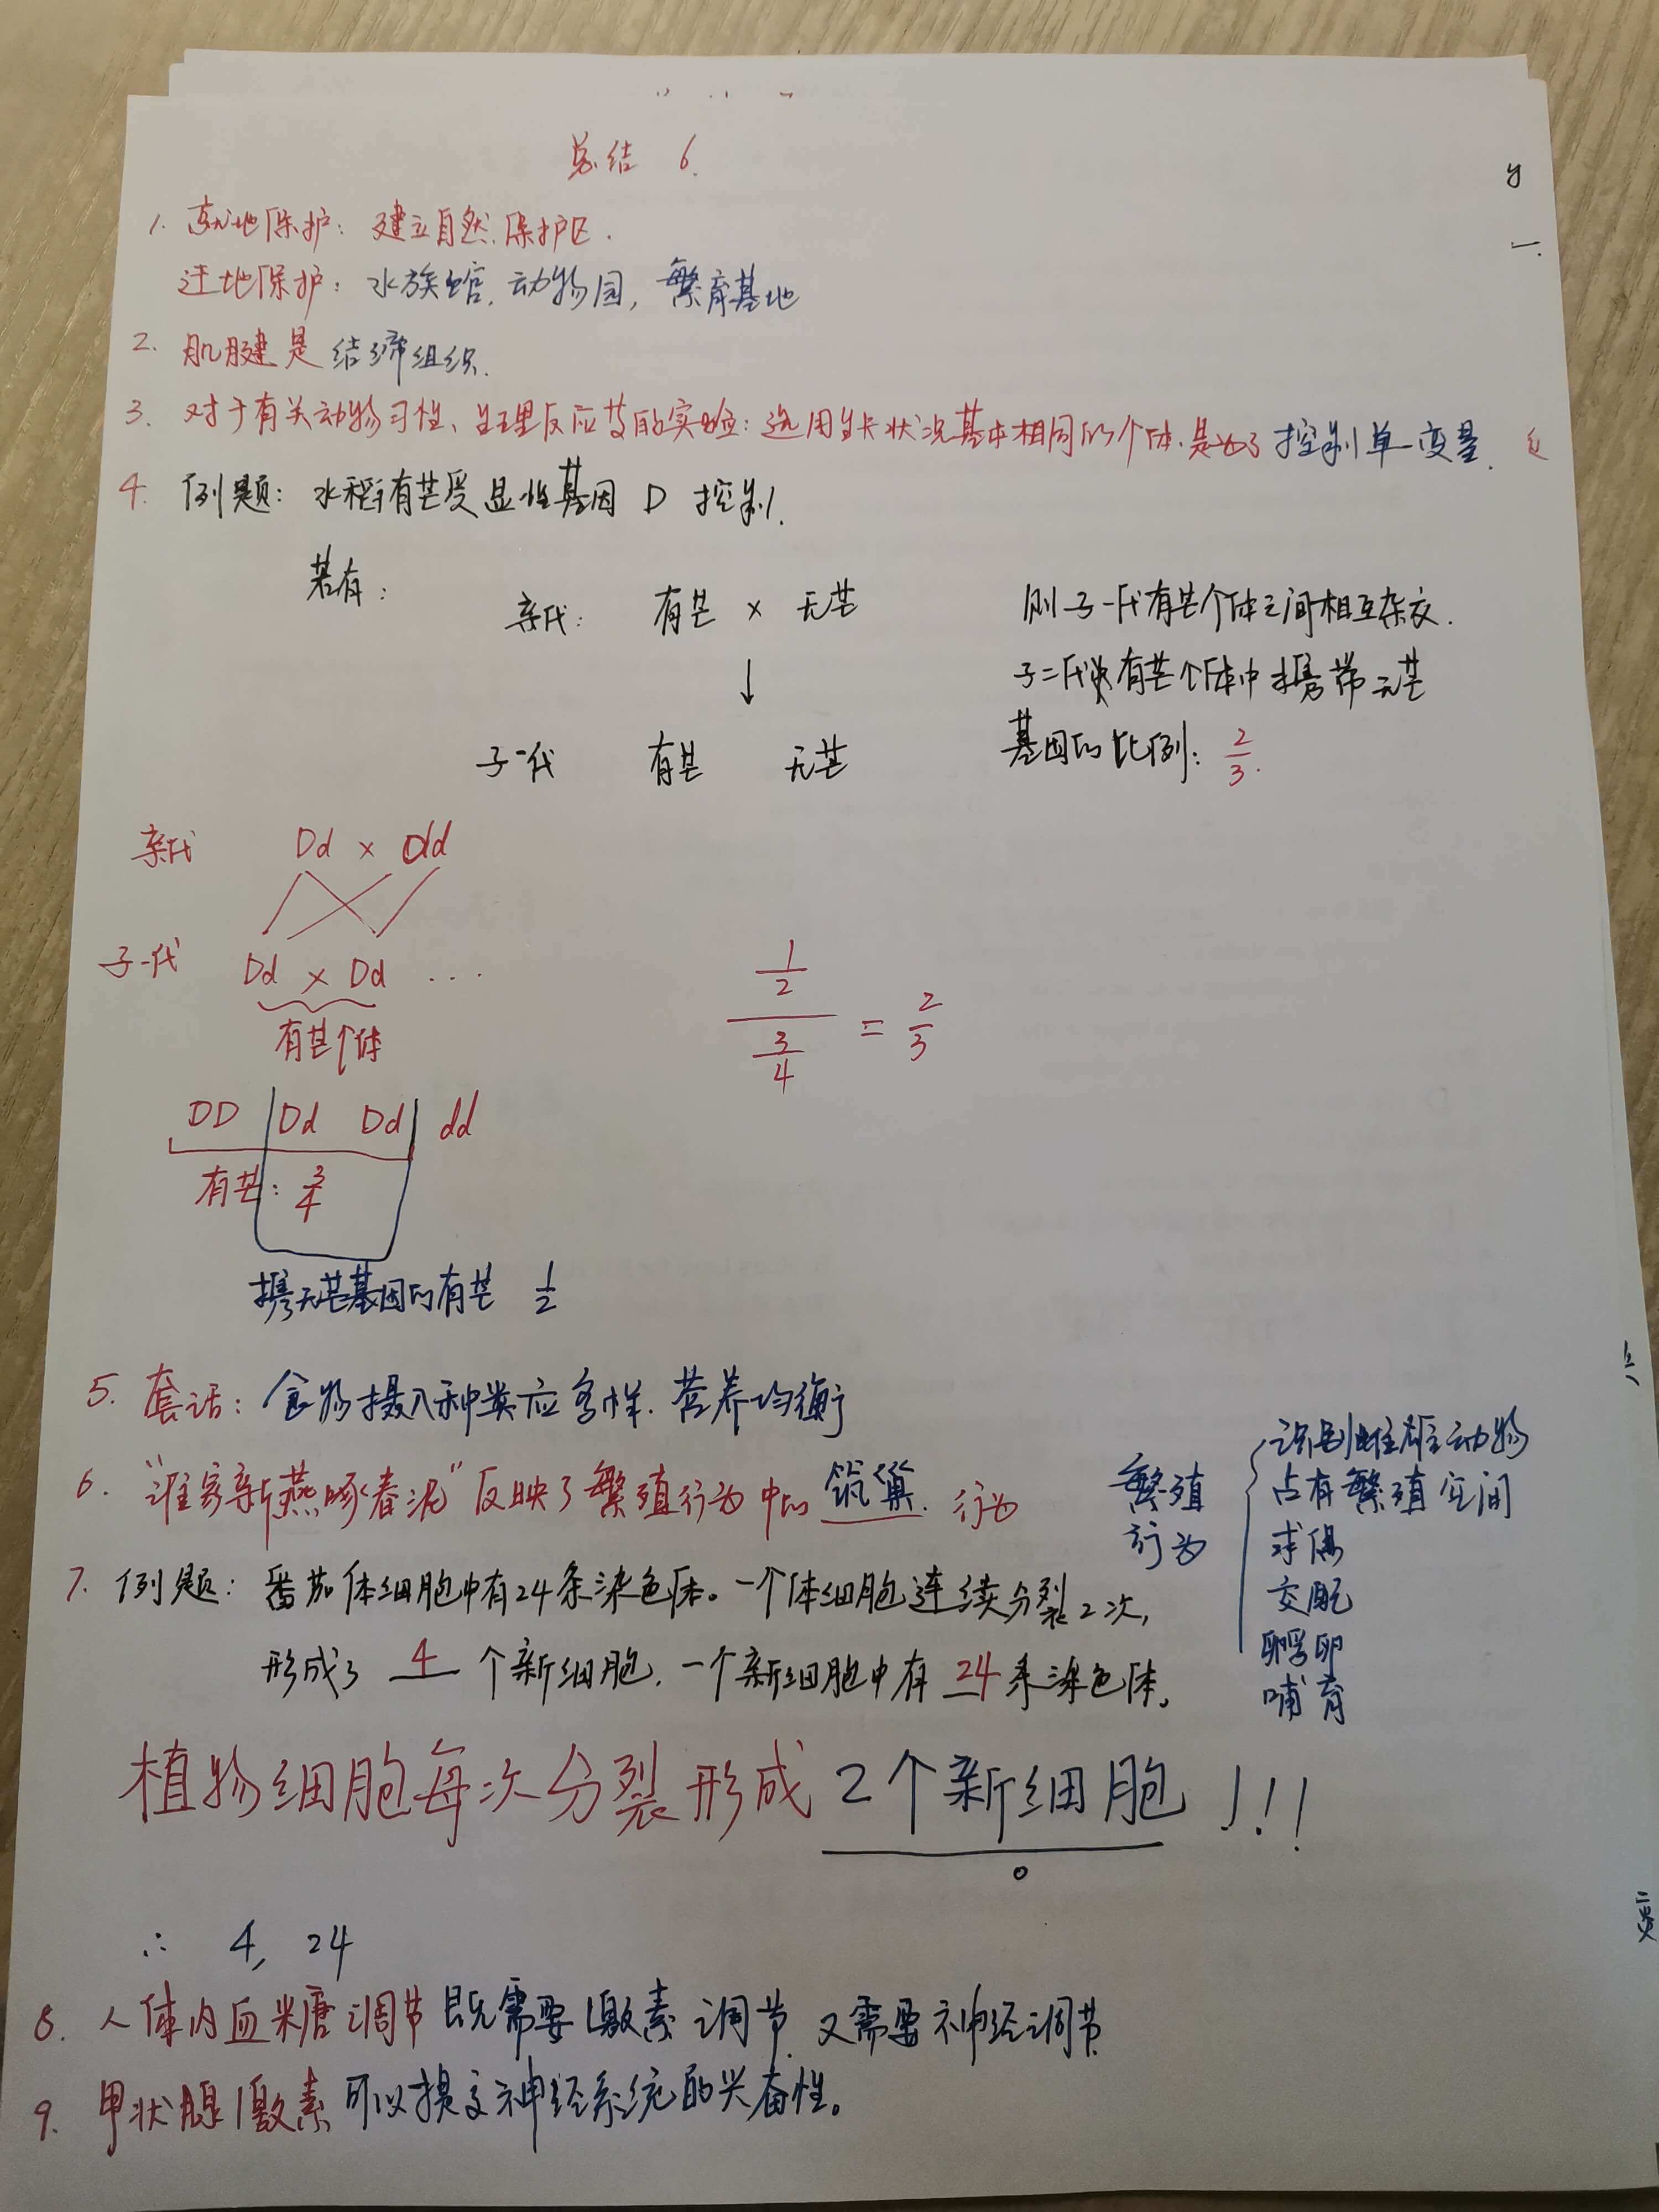 总结 6.
1. 就地保护：建立自然保护区.
迁地保护：水族馆, 动物园, 繁育基地
2. 肌腱是结缔组织.
3. 对于有关动物习性、生理反应等的实验：选用生长状况基本相同的个体.是为了控制单一变量.
4. 例题：水稻有芒受显性基因 D 控制.
若有：
亲代： 有芒 × 无芒
↓
子一代 有芒 无芒
则子一代有芒个体之间相互杂交.
子二代有芒个体中携带无芒
基因的比例：2/3.
亲代 Dd × dd
子一代 Dd × Dd ...
有芒个体
DD Dd Dd dd
有芒：3/4
携无芒基因的有芒 1/2
1/2 / 3/4 = 2/3
5. 套话：食物摄入种类应多样.营养均衡
6. “谁家新燕啄春泥”反映了繁殖行为中的 筑巢. 行为
繁殖
行为
识别雌雄动物
占有繁殖空间
求偶
交配
孵卵
哺育
7. 例题：番茄体细胞中有24条染色体。一个体细胞连续分裂2次,
形成了 4 个新细胞.一个新细胞中有 24 条染色体。
植物细胞每次分裂形成 2个新细胞 ！！！
∴ 4, 24
8. 人体内血糖调节既需要激素调节.又需要神经调节
9. 甲状腺激素可以提高神经系统的兴奋性。